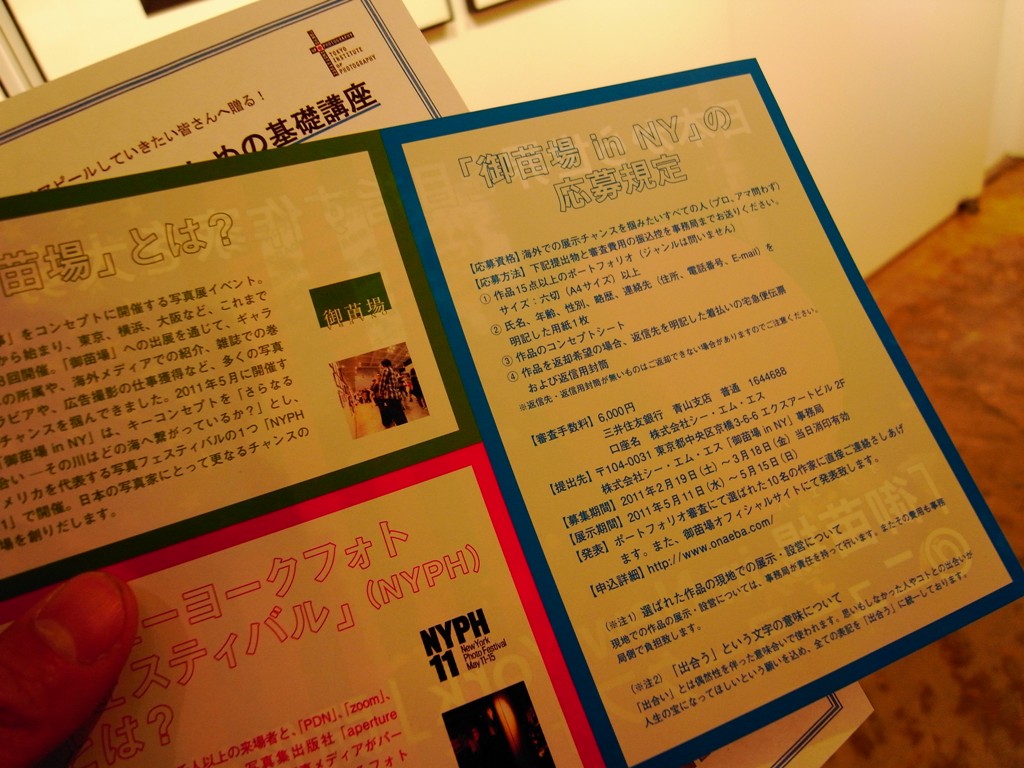 TOKYO
INSTITUTE
OF
PHOTOGRAPHY
ピールしていきたい皆さんへ贈る！
めの基礎講座
苗場」とは？
」をコンセプトに開催する写真展イベント。
から始まり、東京、横浜、大阪など、これまで
8回開催。「御苗場」への出展を通じて、ギャラ
の所属や、海外メディアでの紹介、雑誌での巻
ラビアや、広告撮影の仕事獲得など、多くの写真
チャンスを掴んできました。2011年5月に開催す
「御苗場 in NY」は、キーコンセプトを「さらなる
合い―その川はどの海へ繋がっているか？」とし、
メリカを代表する写真フェスティバルの1つ「NYPH
1」で開催。日本の写真家にとって更なるチャンスの
場を創りだします。
御苗場
ーヨークフォト
ェスティバル」（NYPH）
とは？
NYPH
11
New York
Photo Festival
May 11-15
人以上の来場者と、「PDN」、「zoom」、
写真集出版社「aperture
メディアがパー
フォト
「御苗場 in NY」の
応募規定
【応募資格】海外での展示チャンスを掴みたいすべての人（プロ、アマ問わず）
【応募方法】下記提出物と審査費用の振込控を事務局までお送りください。
① 作品15点以上のポートフォリオ（ジャンルは問いません）
サイズ：六切（A4サイズ）以上
② 氏名、年齢、性別、略歴、連絡先（住所、電話番号、E-mail）を
明記した用紙1枚
③ 作品のコンセプトシート
④ 作品を返却希望の場合、返信先を明記した着払いの宅急便伝票
および返信用封筒
※返信先・返信用封筒が無いものはご返却できない場合がありますのでご注意ください。
【審査手数料】6,000円
三井住友銀行 青山支店 普通 1644688
口座名 株式会社シー・エム・エス
【提出先】〒104-0031 東京都中央区京橋3-6-6 エクスアートビル 2F
株式会社シー・エム・エス「御苗場 in NY」事務局
【募集期間】2011年2月19日（土）～3月18日（金）当日消印有効
【展示期間】2011年5月11日（水）～5月15日（日）
【発表】ポートフォリオ審査にて選ばれた10名の作家に直接ご連絡さしあげ
ます。また、御苗場オフィシャルサイトにて発表致します。
【申込詳細】http://www.onaeba.com/
（※注1）選ばれた作品の現地での展示・設営について
現地での作品の展示・設営については、事務局が責任を持って行います。またその費用も事務
局側で負担致します。
（※注2）「出合う」という文字の意味について
「出合い」とは偶然性を伴った意味合いで使われます。思いもしなかった人やコトとの出合いが
人生の宝になってほしいという願いを込め、全ての表記を「出合う」に統一しております。